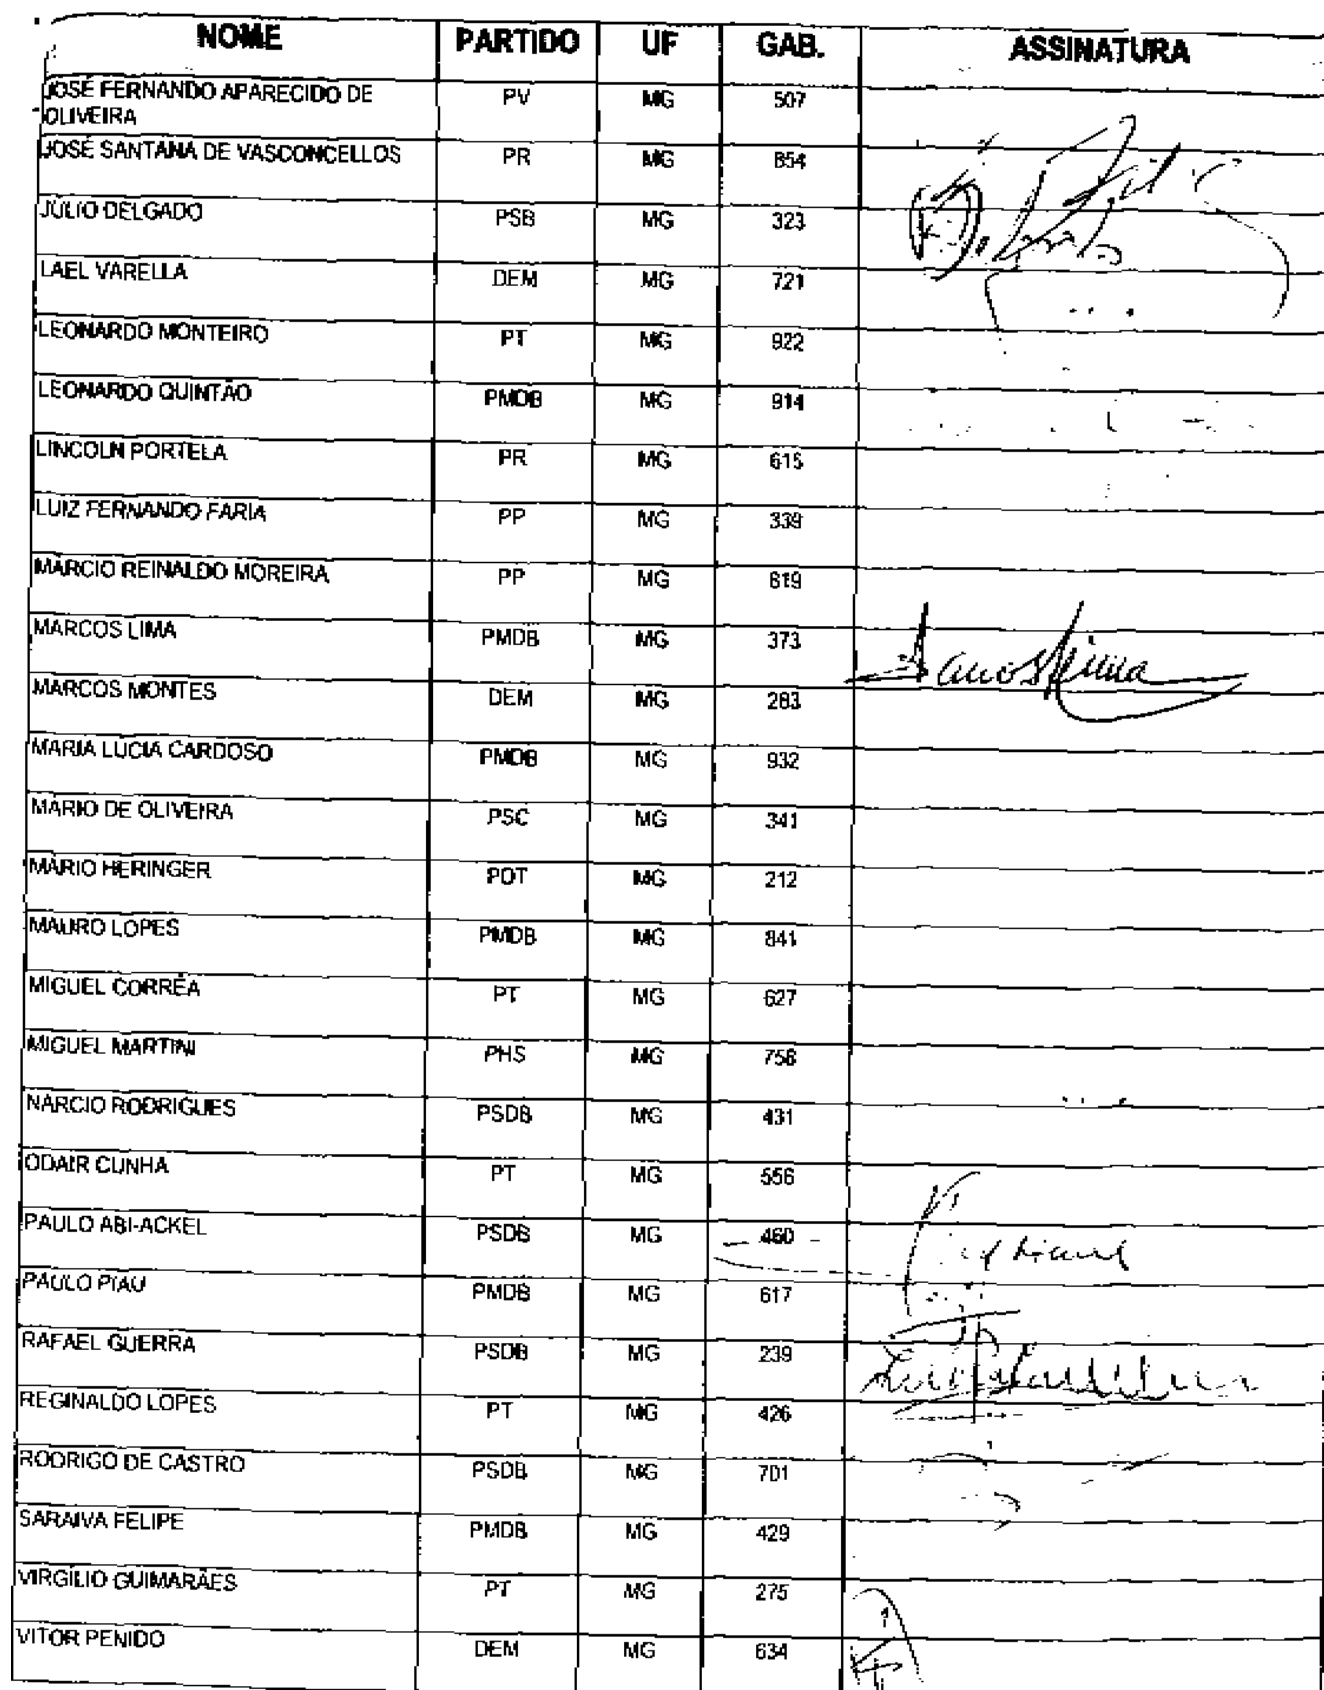 NOME PARTIDO UF GAB. ASSINATURA
JOSÉ FERNANDO APARECIDO DE PV MG 507
OLIVEIRA
JOSÉ SANTANA DE VASCONCELLOS PR MG 854
JÚLIO DELGADO PSB MG 323
LAEL VARELLA DEM MG 721
LEONARDO MONTEIRO PT MG 922
LEONARDO QUINTÃO PMDB MG 914
LINCOLN PORTELA PR MG 615
LUIZ FERNANDO FARIA PP MG 339
MÁRCIO REINALDO MOREIRA PP MG 819
MARCOS LIMA PMDB MG 373
MARCOS MONTES DEM MG 283
MARIA LÚCIA CARDOSO PMDB MG 932
MÁRIO DE OLIVEIRA PSC MG 341
MÁRIO HERINGER PDT MG 212
MAURO LOPES PMDB MG 841
MIGUEL CORRÊA PT MG 627
MIGUEL MARTINI PHS MG 758
NÁRCIO RODRIGUES PSDB MG 431
ODAIR CUNHA PT MG 556
PAULO ABI-ACKEL PSDB MG 460
PAULO PIAU PMDB MG 617
RAFAEL GUERRA PSDB MG 239
REGINALDO LOPES PT MG 426
RODRIGO DE CASTRO PSDB MG 701
SARAIVA FELIPE PMDB MG 429
VIRGÍLIO GUIMARÃES PT MG 275
VITOR PENIDO DEM MG 634